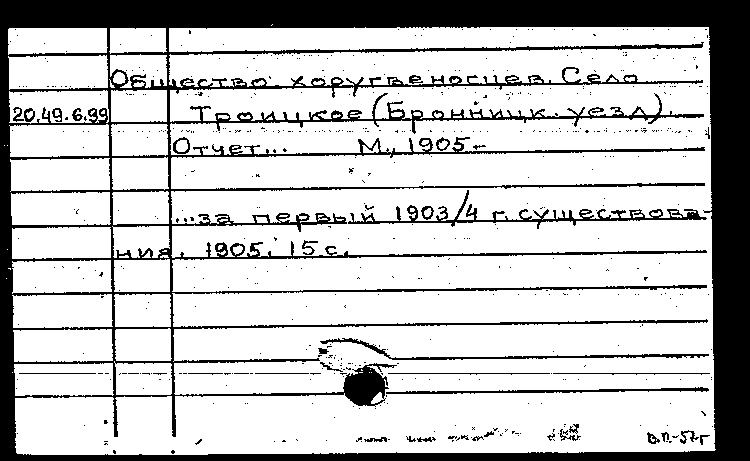 Общество хоругвеносцев. Село
20.49.6.99 Троицкое (Бронницк. уезд).
Отчет... М., 1905-
...за первый 1903/4 г. существова-
ния. 1905. 15 с.
В.П.-57г